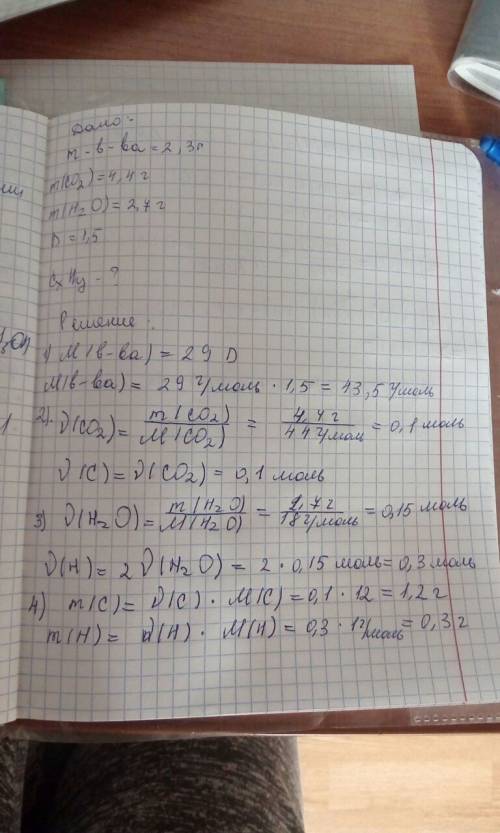 Дано:
m в-ва = 2,3г
m(CO₂) = 4,4 г
m(H₂O) = 2,7 г
D = 1,5
CxHy - ?
Решение:
1) M(в-ва) = 29 D
M(в-ва) = 29 г/моль · 1,5 = 43,5 г/моль
2). ν(CO₂) = m(CO₂)/M(CO₂) = 4,4 г/44 г/моль = 0,1 моль
ν(C) = ν(CO₂) = 0,1 моль
3) ν(H₂O) = m(H₂O)/M(H₂O) = 2,7 г/18 г/моль = 0,15 моль
ν(H) = 2 ν(H₂O) = 2 · 0,15 моль = 0,3 моль
4) m(C) = ν(C) · M(C) = 0,1 · 12 = 1,2 г
m(H) = ν(H) · M(H) = 0,3 · 1 г/моль = 0,3 г